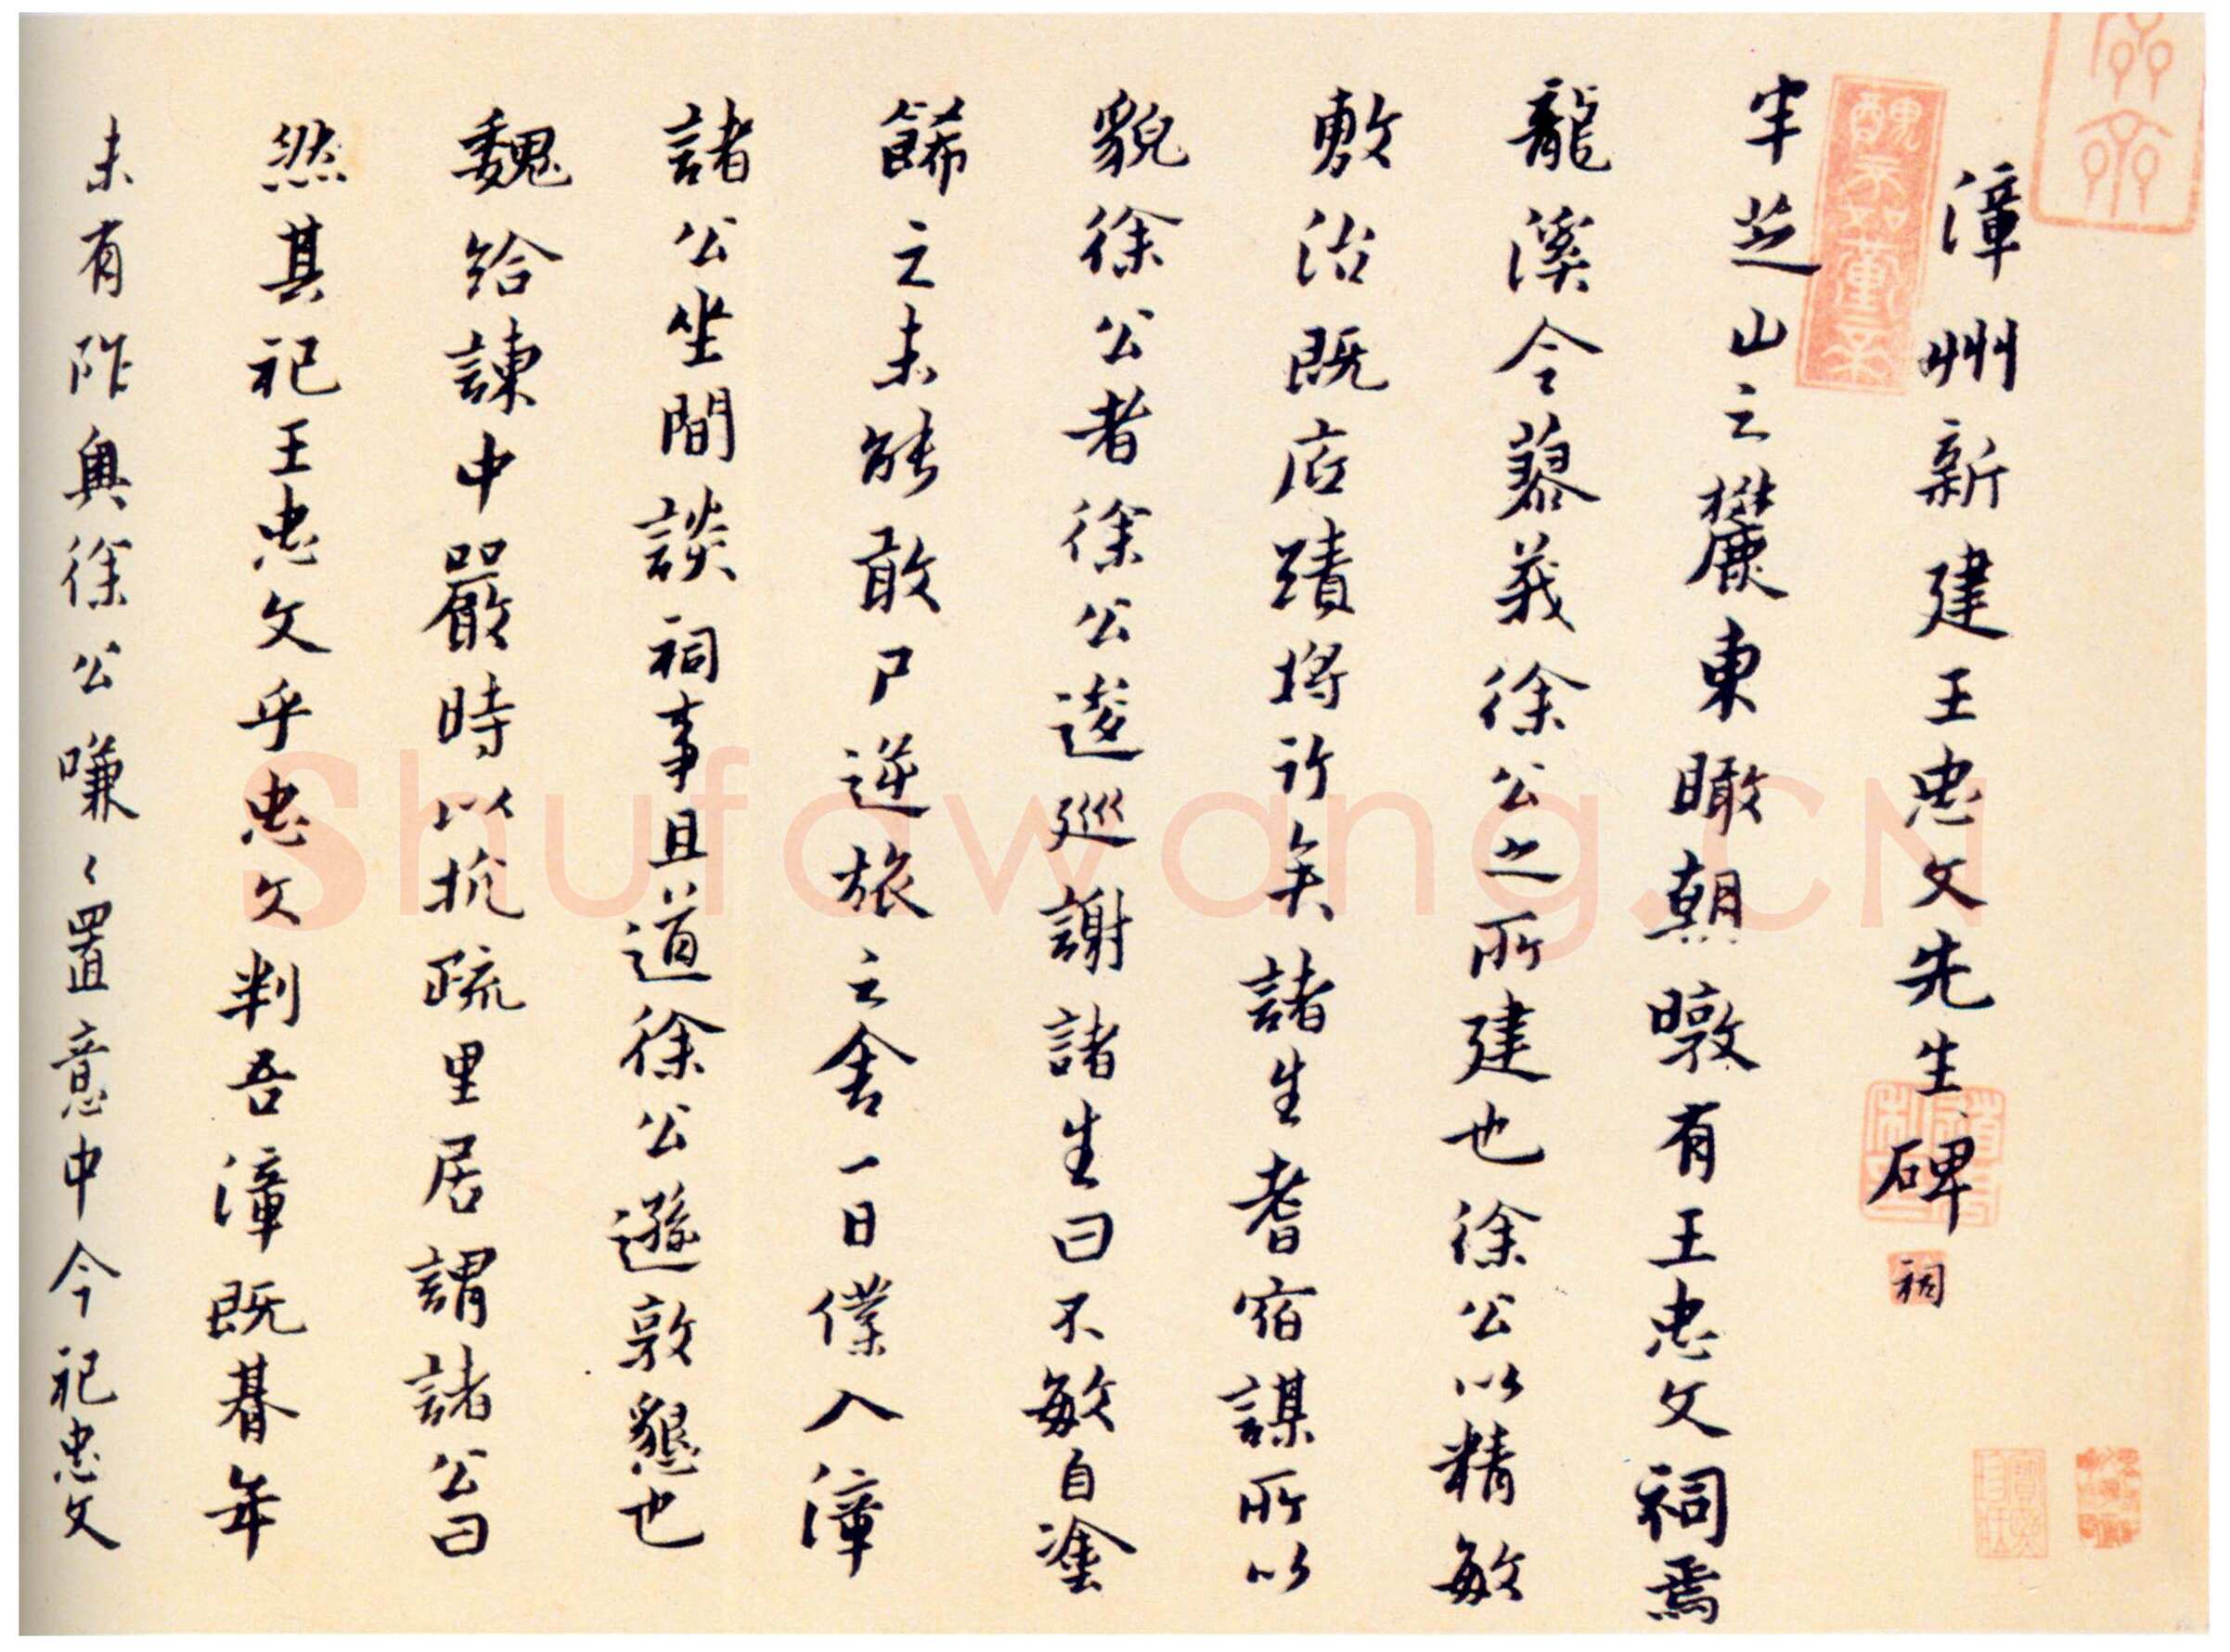 漳州新建王忠文先生碑
祠
半芝山之麓東瞰朝暾有王忠文祠焉
龍溪令慕義徐公之所建也徐公以精敏
敷治既底蹟將行矣諸生耆宿謀所以
貌徐公者徐公逡巡謝諸生曰不敏自塗
餙之未能敢尸逆旅之舍一日僕入漳
諸公坐間談祠事且道徐公遜敦懇也
魏給諫中嚴時以抗疏里居謂諸公曰
然其祀王忠文乎忠文判吾漳既朞年
未有阼奥徐公嗛〻置意中今祀忠文
Shufawang.CN